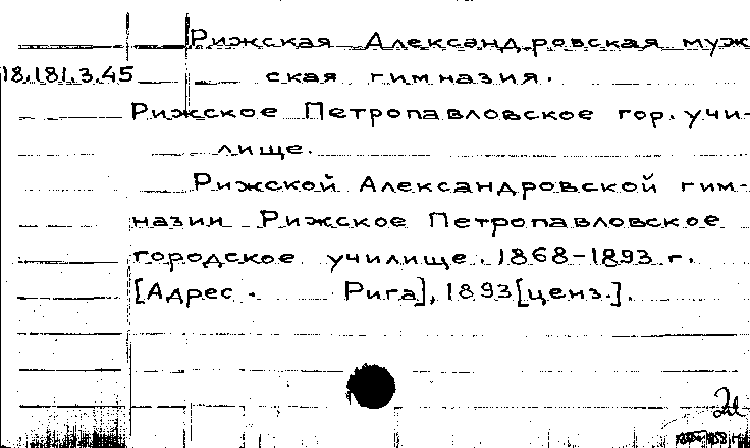 Рижская Александровская муж
18.181.3.45 ская гимназия.
Рижское Петропавловское гор. учи-
лище.
Рижской Александровской гим-
назии Рижское Петропавловское
городское училище. 1868-1893 г.
[Адрес. Рига], 1893 [ценз.].